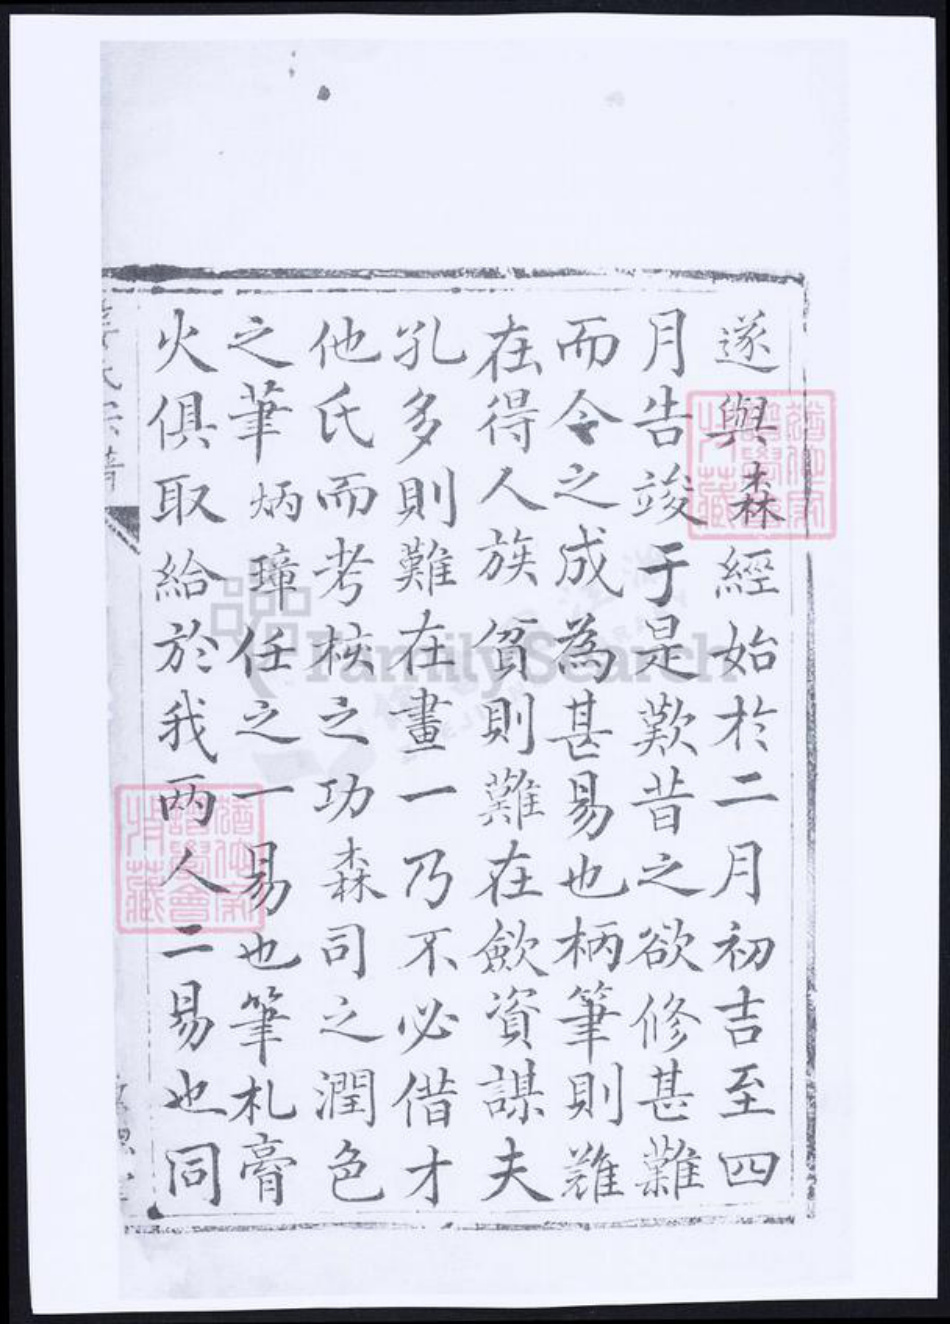 遂與森經始於二月初吉至四
月告竣于是歎昔之欲修甚難
而今之成為甚易也柄筆則難
在得人族貧則難在歛資謀夫
孔多則難在畫一乃不必借才
他氏而考核之功森司之潤色
之筆炳璋任之一易也筆札膏
火俱取給於我两人二易也同
氏宗譜
FamilySearch